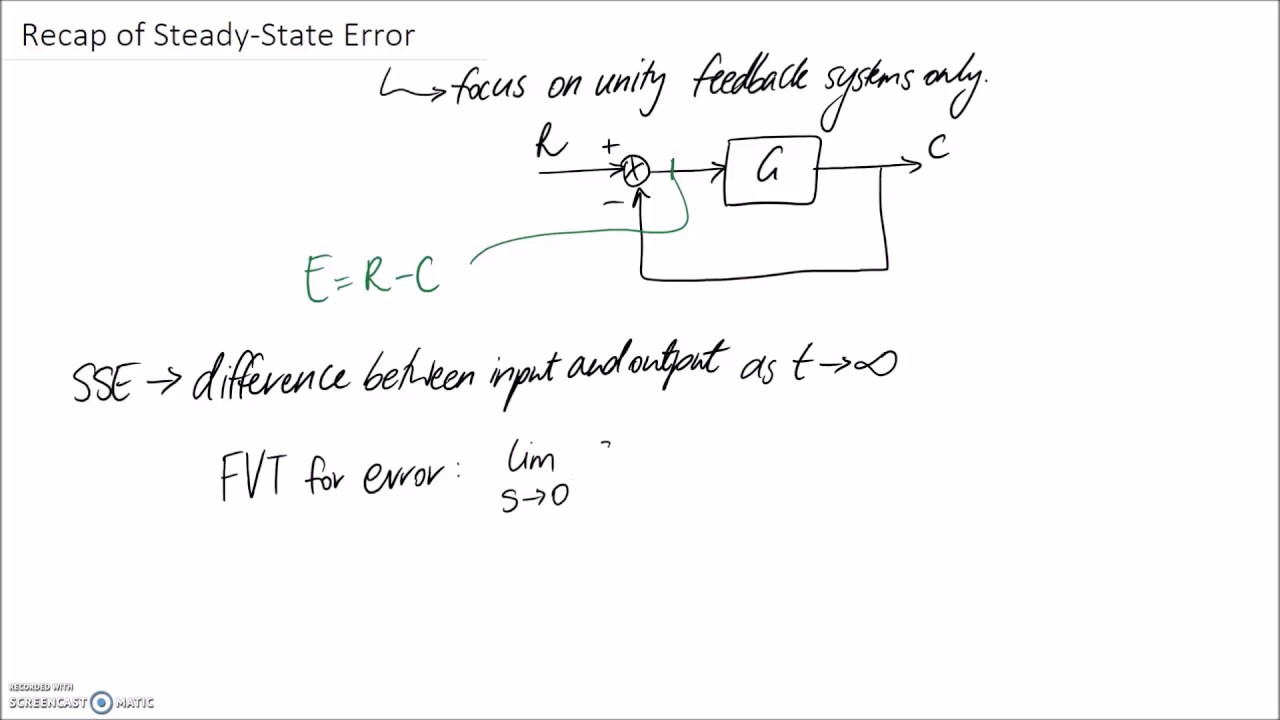 Recap of Steady-State Error
↳ focus on unity feedback systems only.
R + G C
−
E = R − C
SSE → difference between input and output as t → ∞
FVT for error: lim
s→0
RECORDED WITH
SCREENCAST MATIC